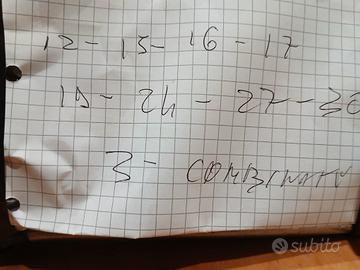 12 - 13 - 16 - 17
19 - 24 - 27 - 30
3 - COMBINATA
subito